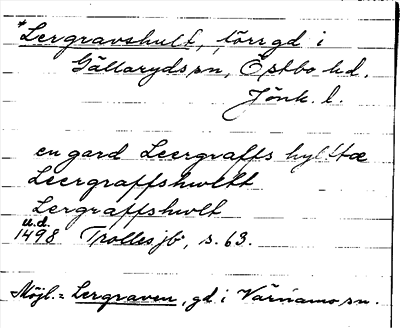 *Lergravshult, törrgd i
Gällaryds sn, Östbo hd.
Jönk. l.
en gard Leergraffs hylttæ
Leergraffshwltt
Lergraffshvlt
u.d.
1498 Trolles jb, s. 63.
Möjl. = Lergraven, gd i Värnamo sn.